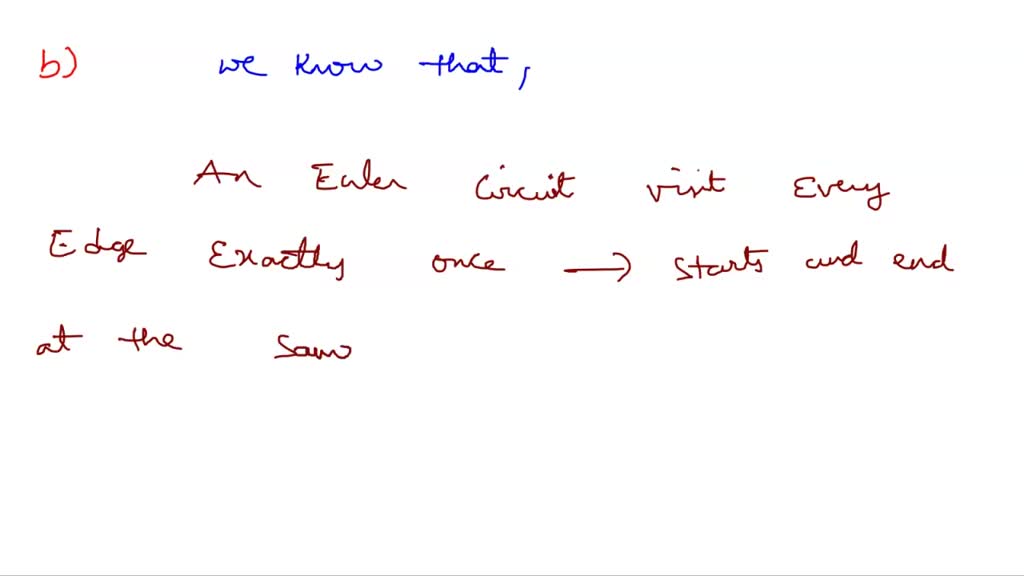 b) we know that,
An Euler Circuit visit Every
Edge Exactly once → starts and end
at the same